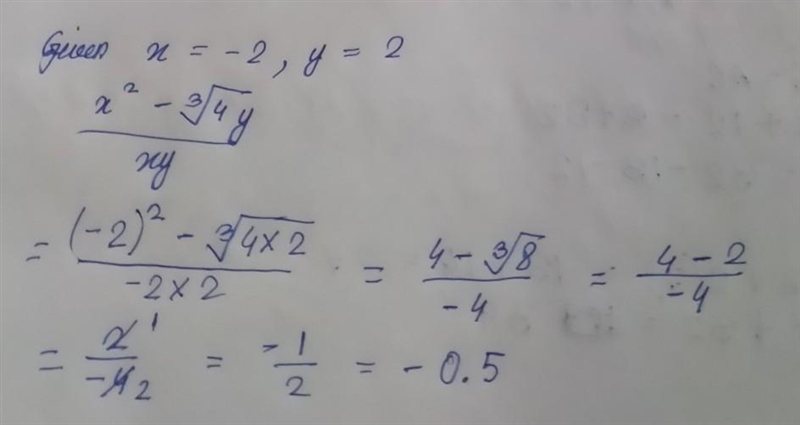 Given x = -2, y = 2
x² - ∛4y / xy
= (-2)² - ∛4×2 / -2×2 = 4 - ∛8 / -4 = 4 - 2 / -4
= 2 1 / -4 2 = -1 / 2 = - 0.5